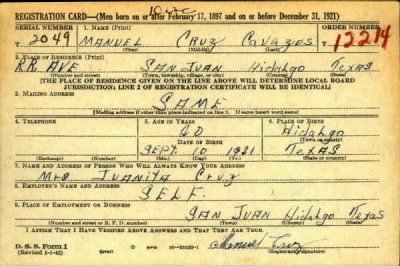 REGISTRATION CARD—(Men born on or after February 17, 1897 and on or before December 31, 1921)
SERIAL NUMBER 1. NAME (Print) ORDER NUMBER
T 2049 MANUEL CRUZ CAVAZOS 12214
(First) (Middle) (Last)
2. PLACE OF RESIDENCE (Print)
RR AVE SAN JUAN Hidalgo TEXAS
(Number and street) (Town, township, village, or city) (County) (State)
[THE PLACE OF RESIDENCE GIVEN ON THE LINE ABOVE WILL DETERMINE LOCAL BOARD
JURISDICTION; LINE 2 OF REGISTRATION CERTIFICATE WILL BE IDENTICAL]
3. MAILING ADDRESS
SAME
[Mailing address if other than place indicated on line 2. If same insert word same]
4. TELEPHONE 5. AGE IN YEARS 6. PLACE OF BIRTH
20 Hidalgo
DATE OF BIRTH (Town or county)
SEPT. 10 1921 TEXAS
(Exchange) (Number) (Mo.) (Day) (Yr.) (State or country)
7. NAME AND ADDRESS OF PERSON WHO WILL ALWAYS KNOW YOUR ADDRESS
Mrs JUANITA CRUZ
8. EMPLOYER'S NAME AND ADDRESS
SELF.
9. PLACE OF EMPLOYMENT OR BUSINESS
SAN JUAN Hidalgo Texas
(Number and street or R. F. D. number) (Town) (County) (State)
I AFFIRM THAT I HAVE VERIFIED ABOVE ANSWERS AND THAT THEY ARE TRUE.
D. S. S. Form 1
(Revised 1-1-42) (over) Manuel Cruz
(Registrant's signature)